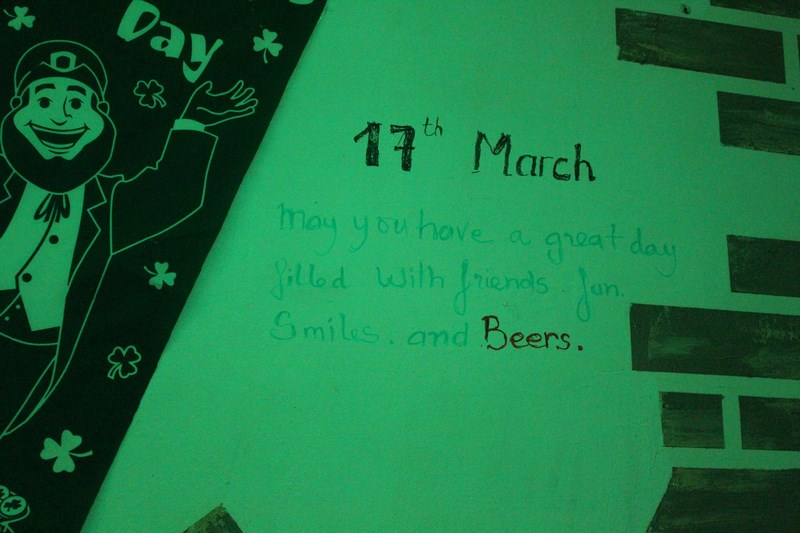 Day
17th March
May you have a great day
filled with friends. fun.
Smiles. and Beers.